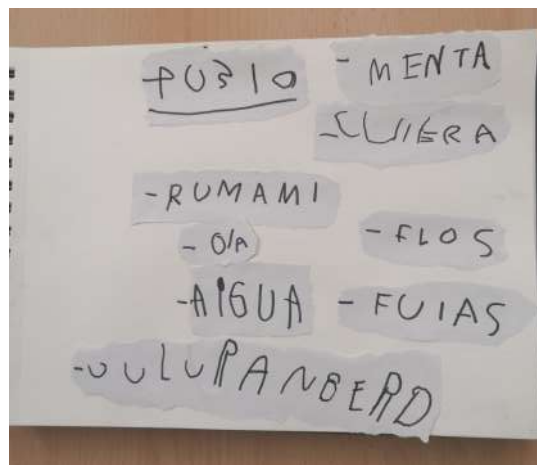 PU310
- MENTA
- CUIERA
- RUMAMI
- O/A
- FLOS
- AIGUA
- FUIAS
- UULURANBERD